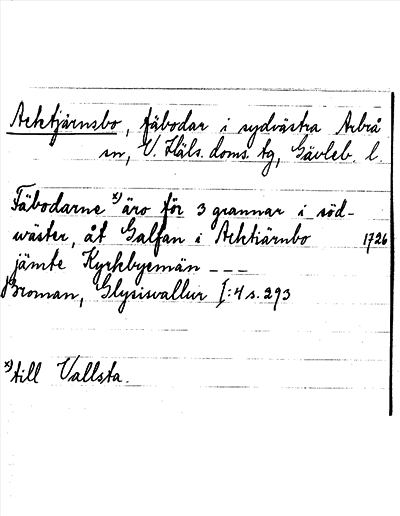 Acktjärnsbo, fäbodar i sydvästra Arbrå
sn, V. Häls. doms. tg, Gävleb. l.
Fäbodarne x) äro för 3 grannar i söd-
wäster, åt Galfan i Acktiärnbo 1726
jämte Kyrkbyemän ---
Broman, Glysisvallur I:4 s. 293
x) till Vallsta.